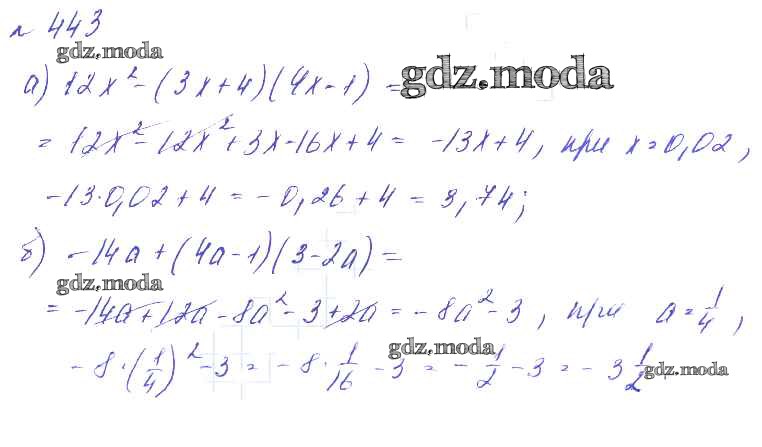 № 443
gdz.moda
а) 12x² - (3x+4)(4x-1) =
gdz.moda
= 12x² - 12x² + 3x - 16x + 4 = -13x + 4, при x = 0,02,
-13·0,02 + 4 = -0,26 + 4 = 3,74;
б) -14a + (4a-1)(3-2a) =
gdz.moda
= -14a + 12a - 8a² - 3 + 2a = -8a² - 3, при a = 1/4,
gdz.moda
-8·(1/4)² - 3 = -8·1/16 - 3 = -1/2 - 3 = -3 1/2
gdz.moda